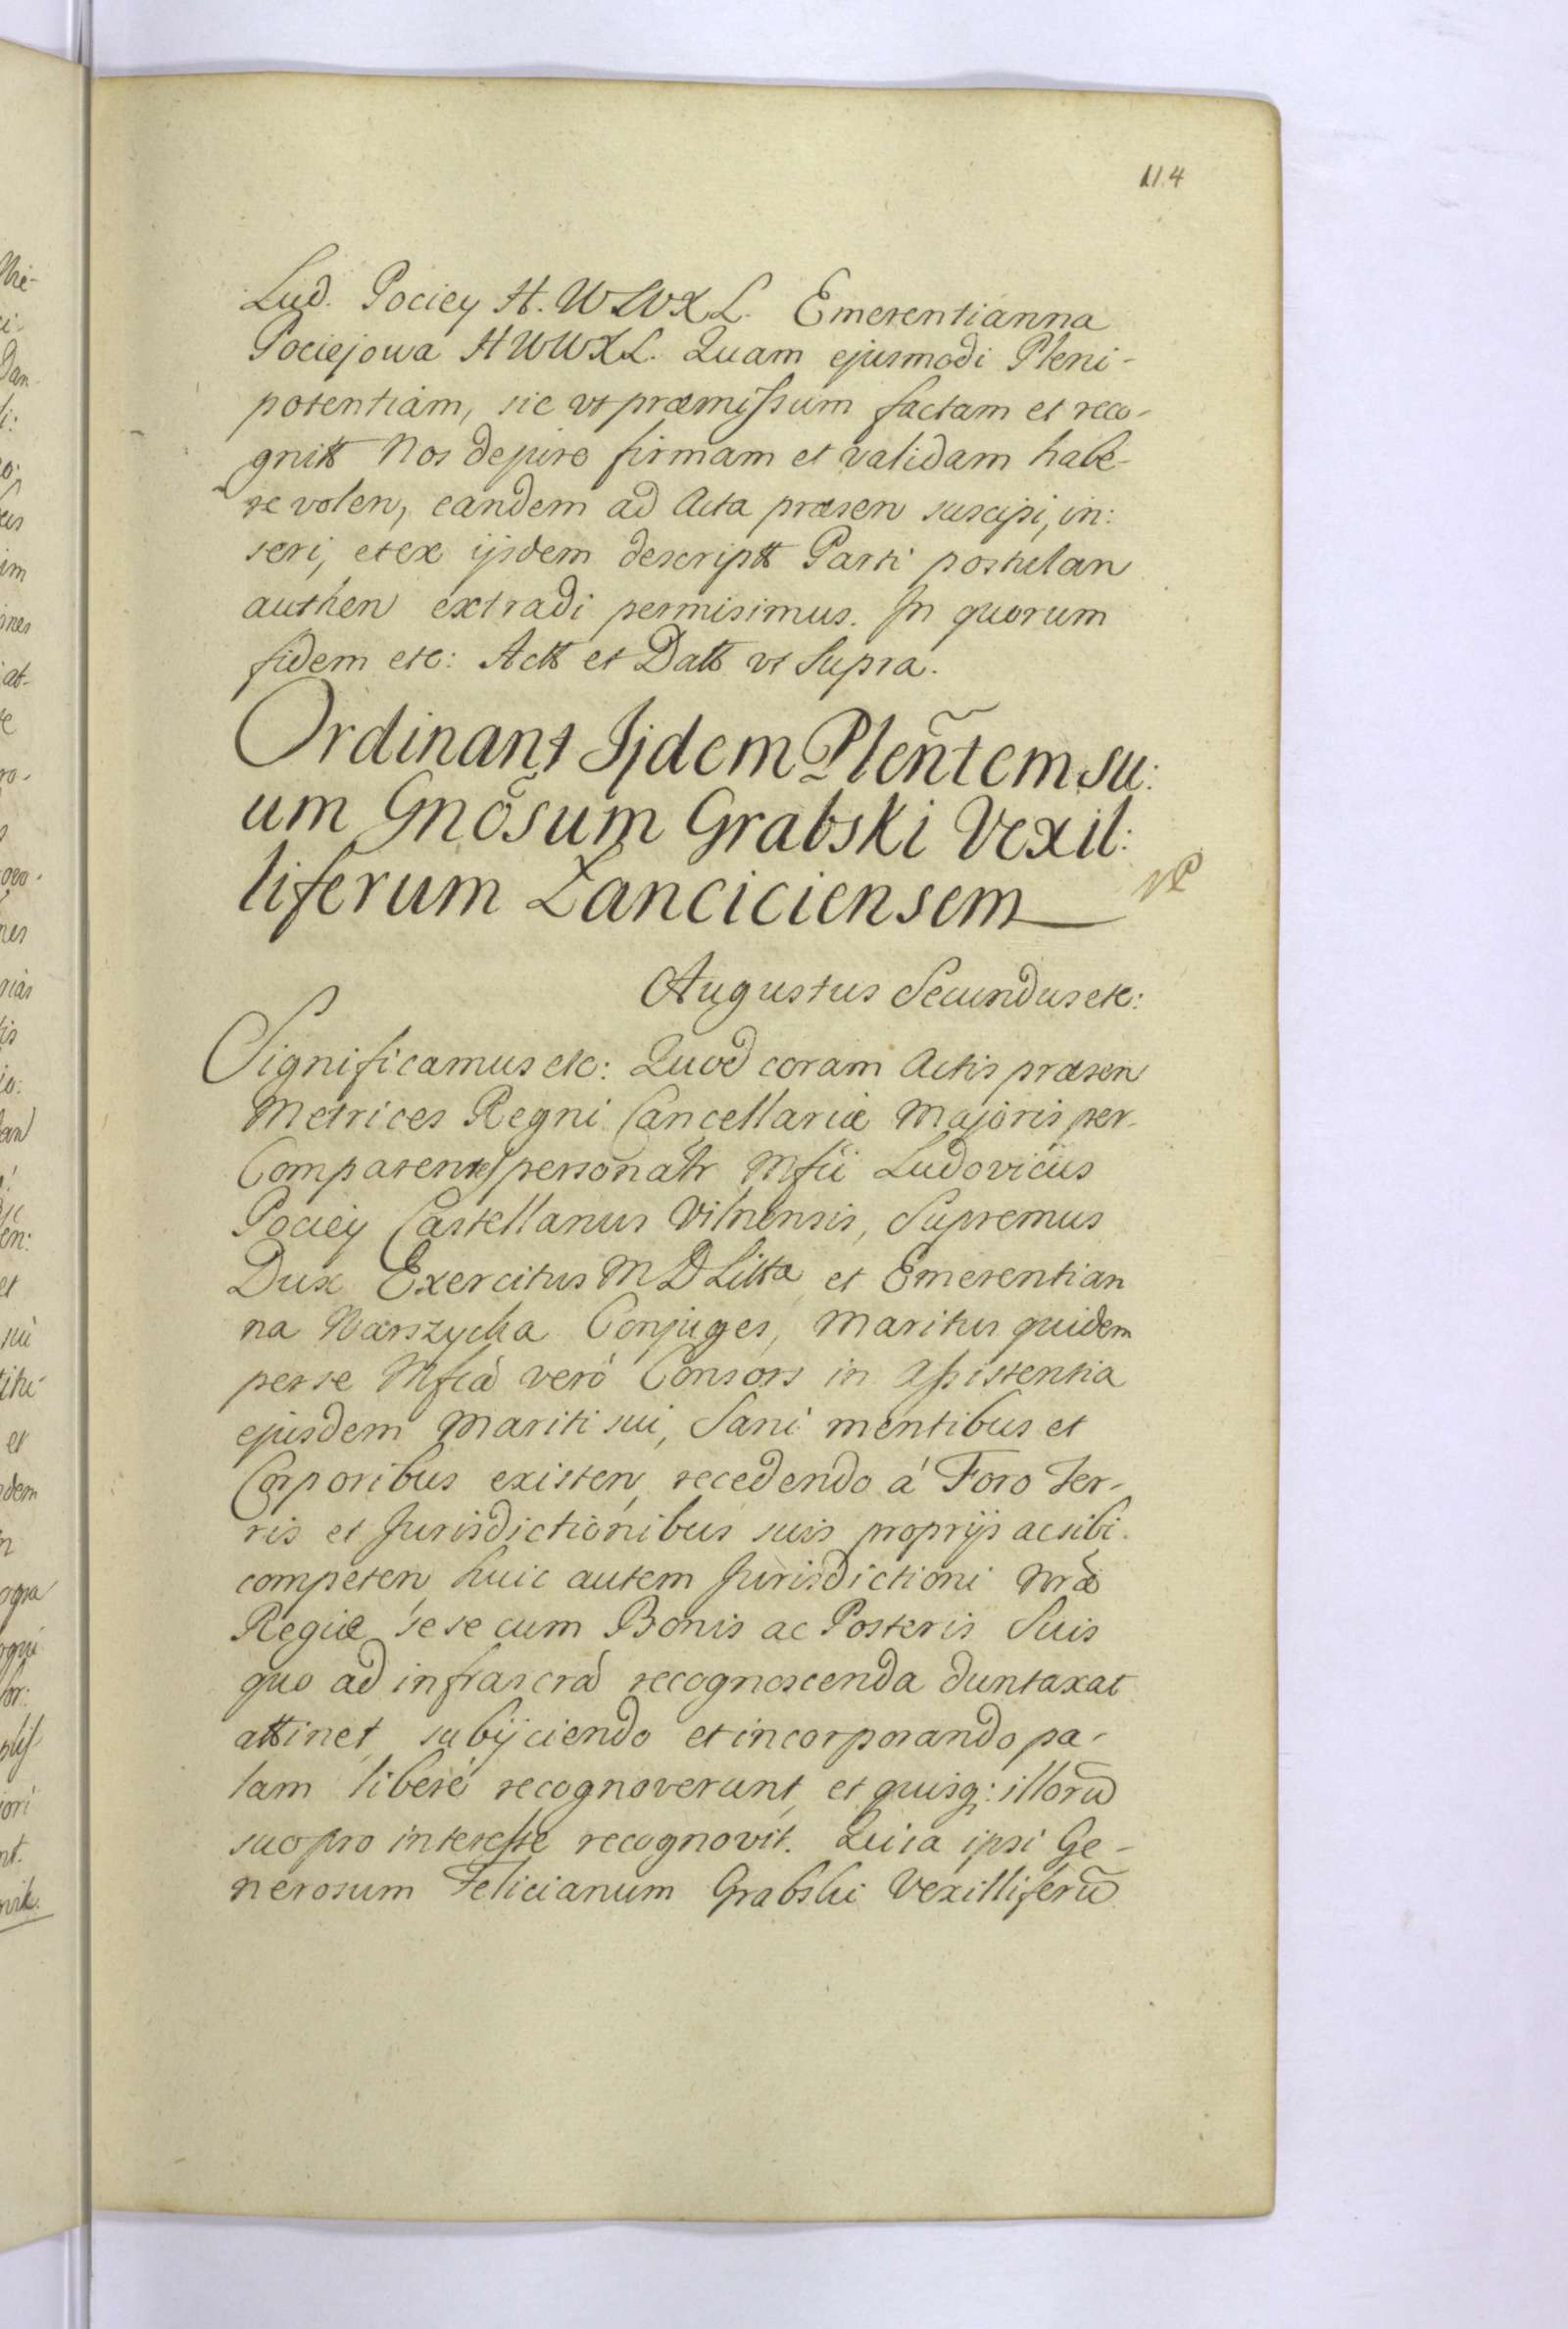 114
Lud. Pociey H. W L W X L. Emerentianna
Pociejowa H W W X L. Quam ejusmodi Pleni-
potentiam, sic vt præmissum factam et reco-
gnitt Nos de jure firmam et validam habe-
re volen, eandem ad Acta præsen suscipi, in:
seri, et ex ijsdem descriptt Parti postulan
authen extradi permisimus. In quorum
fidem etc: Actt et Datt vt Supra.
Ordinant Ijdem Pleñtem su:
um Gnõsum Grabski Vexil:
liferum Lanciciensem
NP
Augustus Secundus etc:
Significamus etc: Quod coram Actis præsen
Metrices Regni Cancellariæ Majoris per-
Comparentes personatr Mfci Ludovicus
Pociey Castellanus Vilnensis, Supremus
Dux Exercitus M D Litta et Emerentian
na Warszycka Conjuges, Maritus quidem
per se Mfca verò Consors in assistentia
ejusdem Mariti sui, Sani mentibus et
Corporibus existen, recedendo á Foro Ter-
ris et Jurisdictionibus suis proprijs ac sibi
competen, huic autem Jurisdictioni Nræ
Regiæ sese cum Bonis ac Posteris Suis
quo ad infrascrã recognoscenda duntaxat
attinet, subijciendo et incorporando pa-
lam liberè recognoverunt, et quisq: illorũ
suo pro interesse recognovit. Quia ipsi Ge-
nerosum Felicianum Grabski Vexilliferũ